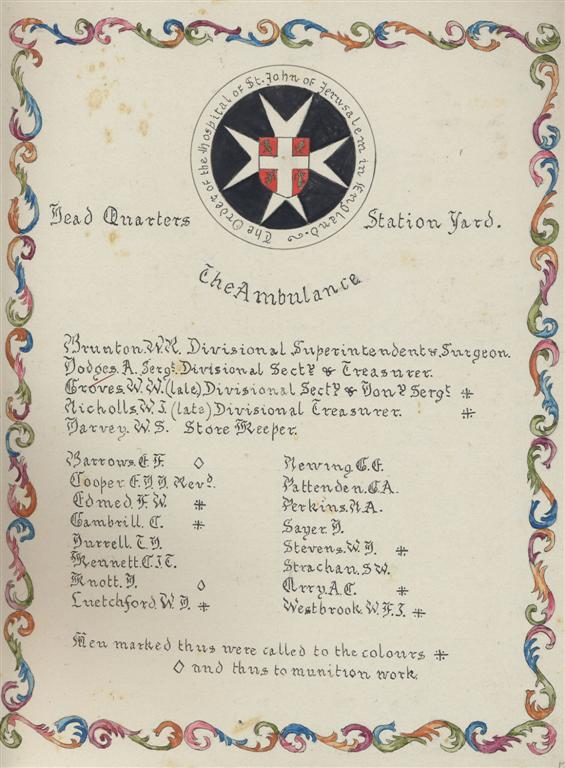 The Order of the Hospital of St. John of Jerusalem in England.
Head Quarters Station Yard.
The Ambulance
Brunton. W.R. Divisional Superintendent & Surgeon.
Hodges. A. Sergt. Divisional Secty & Treasurer.
Groves. W.W. (late) Divisional Secty & Hony Sergt ⁜
Nicholls. W.J. (late) Divisional Treasurer. ⁜
Harvey. W.S. Store Keeper.
Barrows. E.F. ◊
Cooper E.H.H. Revd.
Edmed. F.W. ⁜
Gambrill. C. ⁜
Hurrell. T.H.
Kennett. C.J.T.
Knott. H. ◊
Luetchford. W.H. ⁜
Newing. G.E.
Pattenden. G.A.
Perkins. R.A.
Sayer H.
Stevens. W.H. ⁜
Strachan. S.W.
Urry. A.C. ⁜
Westbrook. W.F.J. ⁜
Men marked thus were called to the colours ⁜
◊ and thus to munition work.